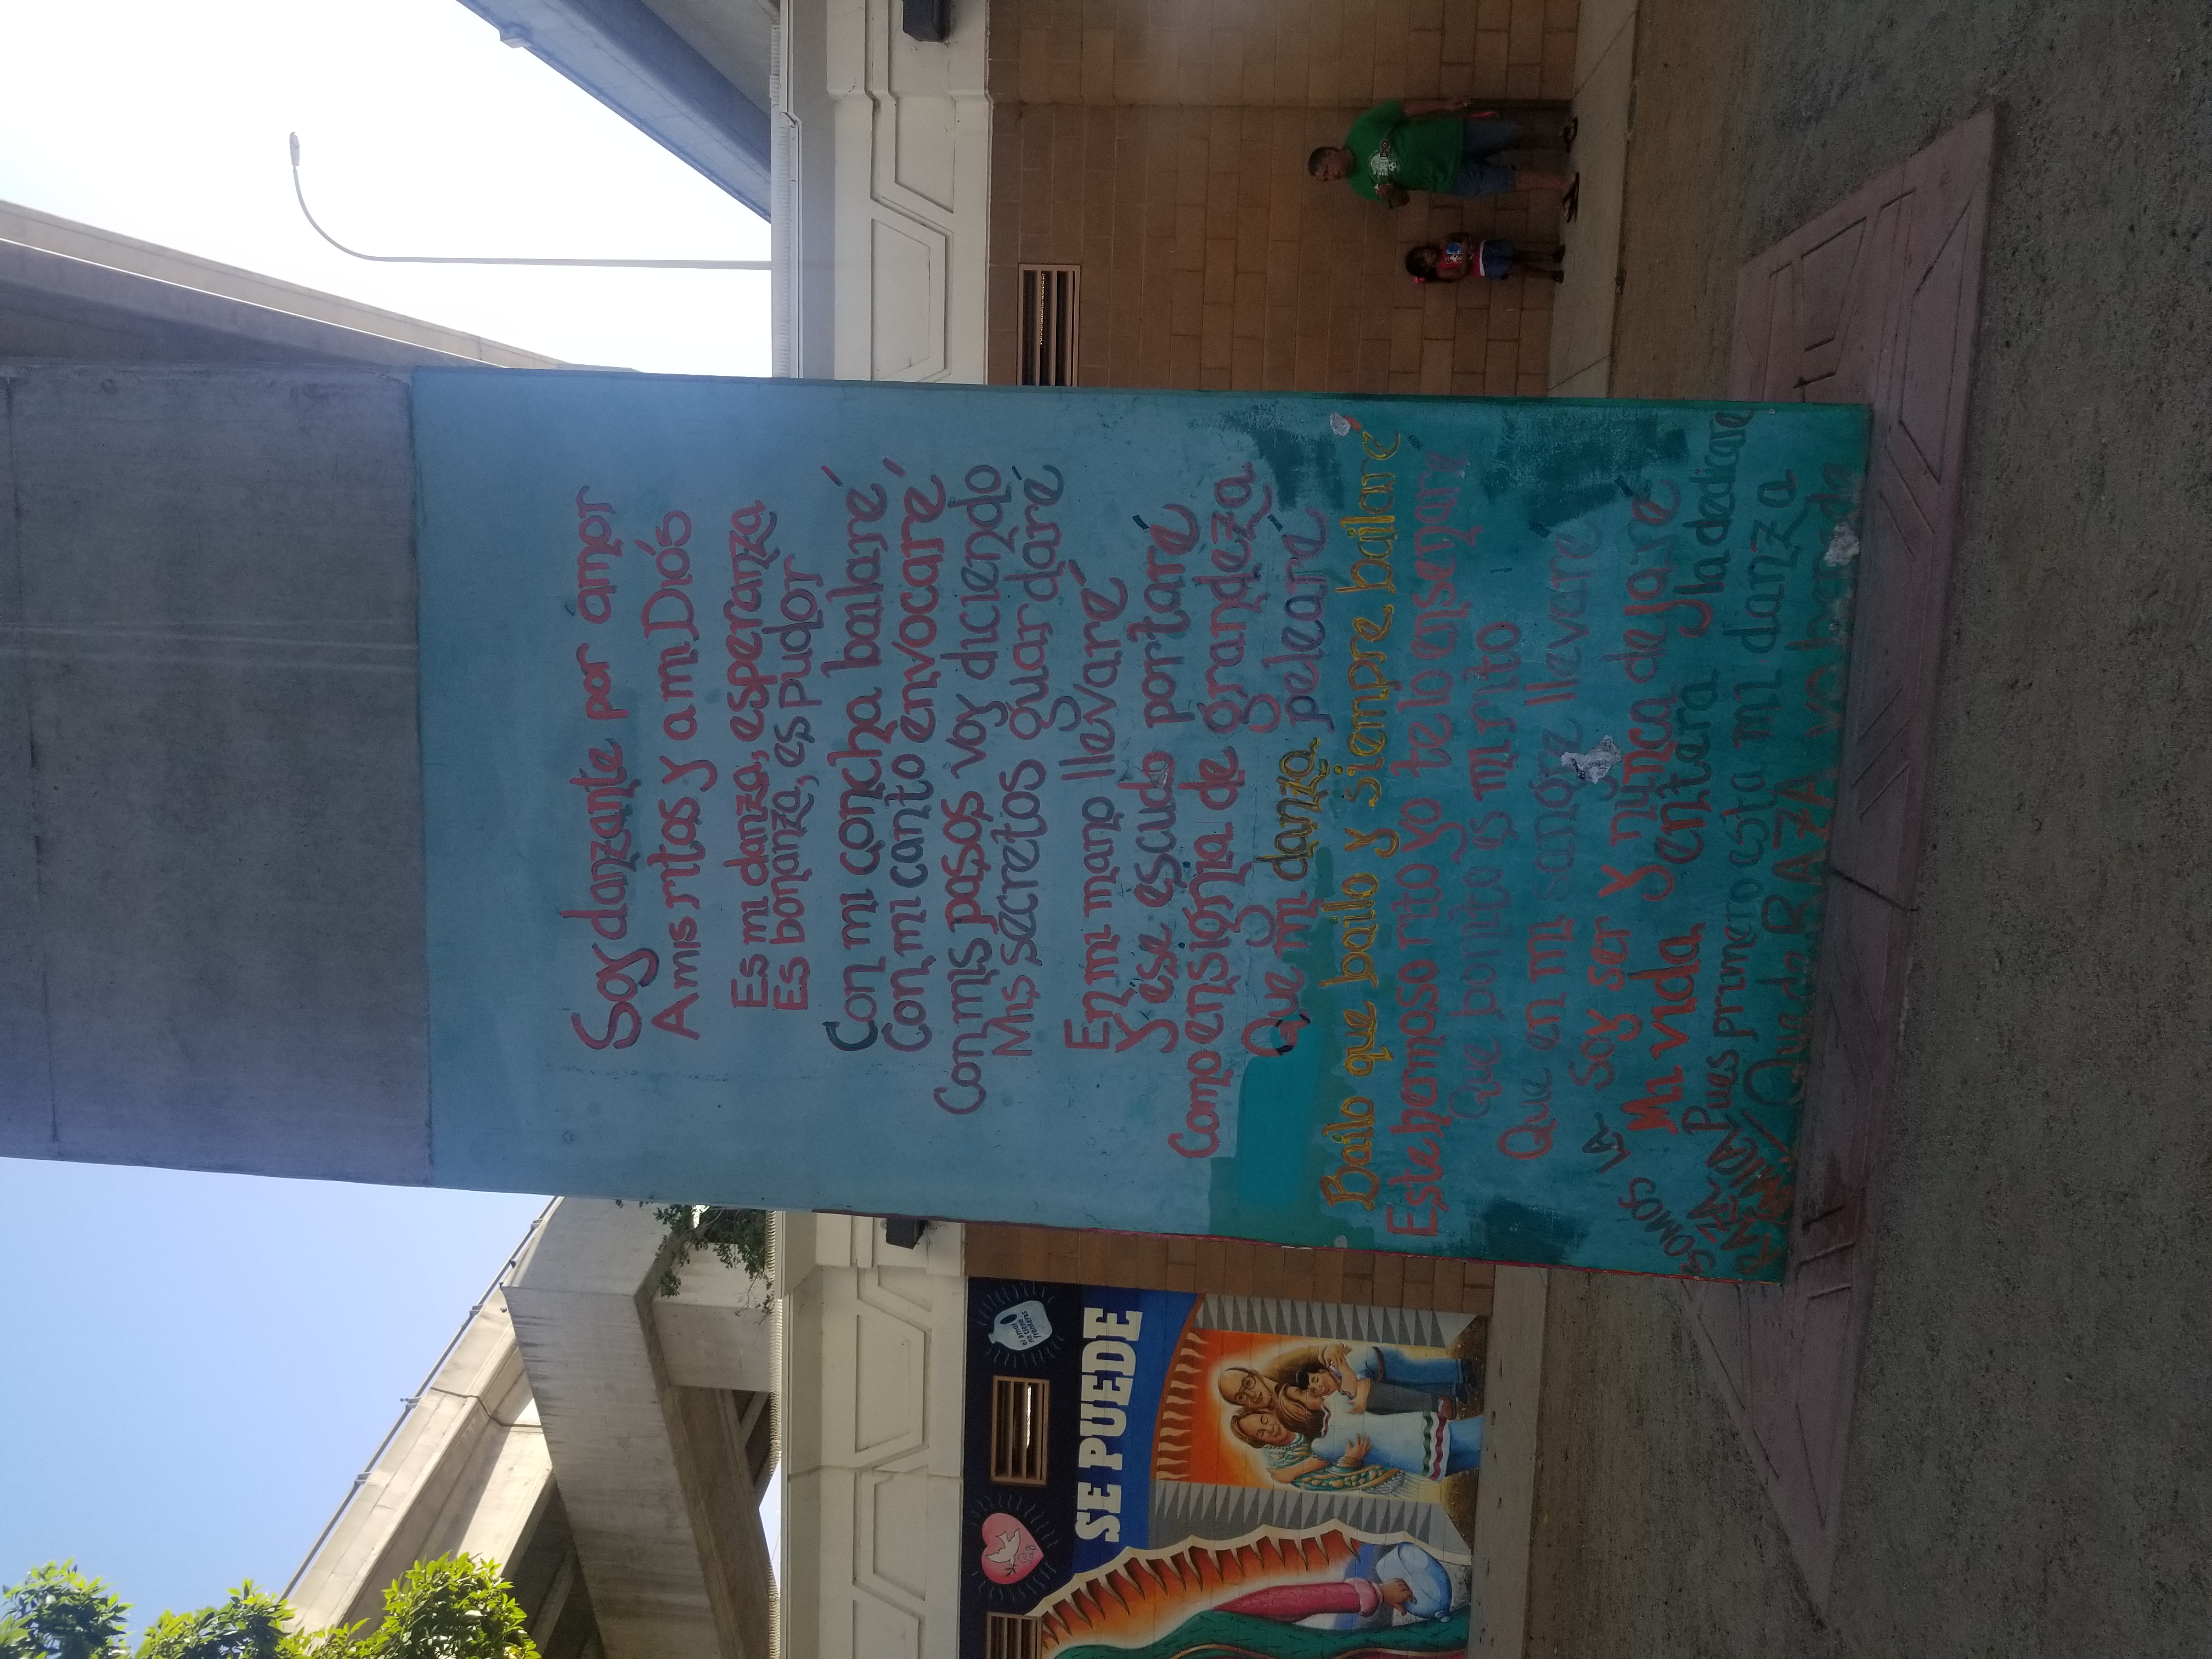 Soy danzante por ámor
A mis ritos y a mi Diós
Es mi danza, esperanza
Es bonanza, es pudor
Con mi concha bailaré
Con mi canto envocaré
Con mis pasos voy diciendo
Mis secretos guardaré
En mi mano llevaré
Y ése escudo portaré
Como ensignia de grandeza
Que mi danza peleare
Bailo que bailo y siempre bailaré
Este hermoso rito yo te lo enseñaré
Que bonito es mi rito
Que en mi sangre llevare
Soy ser y nunca dejaré
Mi vida entera la dedicare
Pues primero esta mi danza
Que de RAZA yo
SOMOS LA
RAZA
Paz
el amor
no tiene
fronteras
SE PUEDE